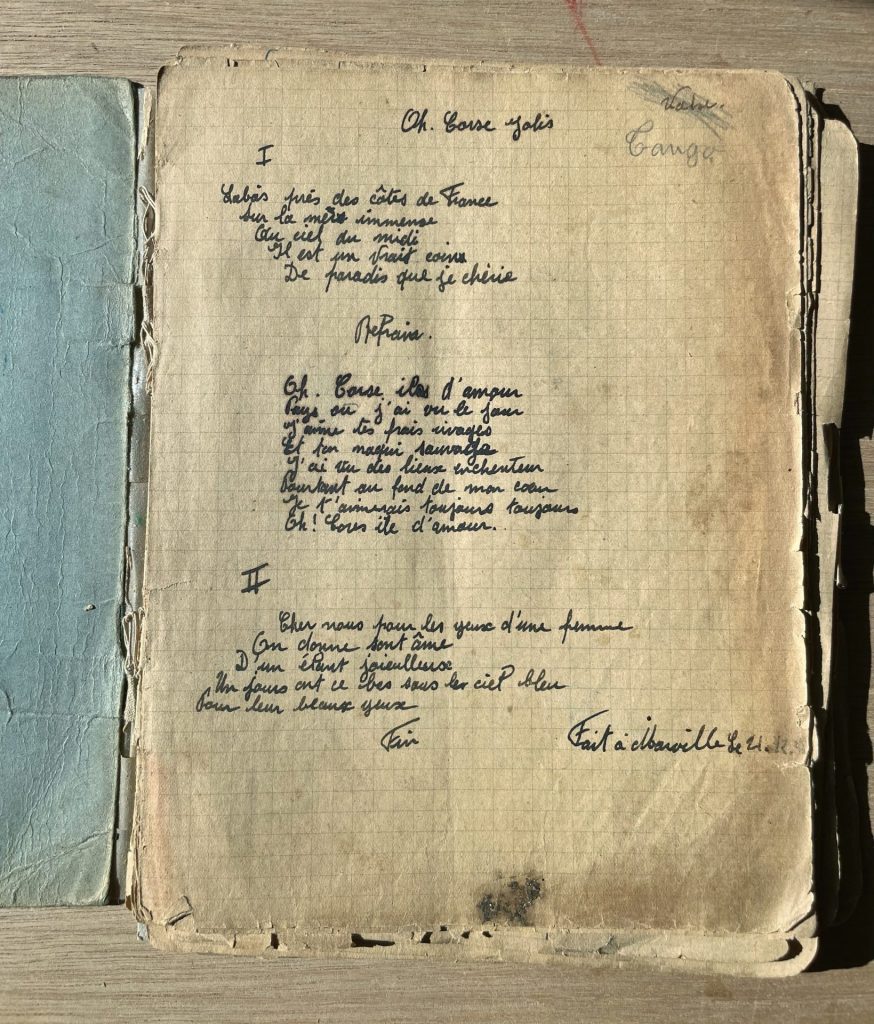 Valse.
Tango
Oh. Corse Jolis
I
Labàs près des côtes de France
sur la mers immense
Au ciel du midi
Il est un vrait coins
De paradis que je chérie
Refrain.
Oh. Corse iles d'amour
Pays ou j'ai vu le jour
J'aime tes frais rivages
Et ton maqui sauvage
J'ai vu des lieux enchenteur
Pourtant au fond de mon coeur
Je t'aimerais toujours toujours
Oh! Cores ile d'amour.
II
Cher nous pour les yeux d'une femme
On donne sont âme
D'un élant joieulleux
Un jours ont ce bas sous le ciel bleu
Pour leur beaux yeux
Fin
Fait à Marville Le 21.12.